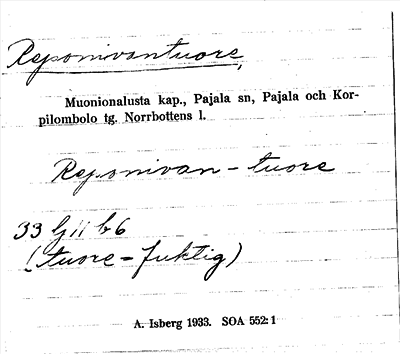 Reponivantuore,
Muonionalusta kap., Pajala sn, Pajala och Kor-
pilombolo tg. Norrbottens l.
Reponivan-tuore
33 Gj 11 b 6
(tuore = fuktig)
A. Isberg 1933. SOA 552:1